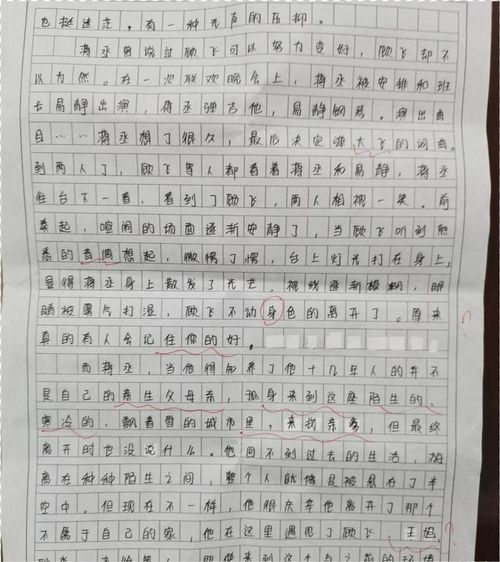 也挺迷茫。有一种无声的压抑。
蒋丞曾说过顾飞可以努力变好，顾飞却不
以为然。在一次联欢晚会上，蒋丞被安排和班
长易静出演，蒋丞弹吉他，易静钢琴。演出曲
目……蒋丞想了很久，最后决定弹大飞的词曲。
到两人了，顾飞等人都看着蒋丞和易静，蒋丞
往台下一看，看到了顾飞，两人相视一笑。前
奏起，喧闹的场面逐渐安静了，当顾飞听到熟
悉的音调想起，微愣了愣，台上灯光打在身上，
显得蒋丞身上散发了光芒，视线逐渐模糊，眼
睛被雾气打湿，顾飞不动身色的离开了。原来
真的有人会记住你的好。
而蒋丞，当他得知养了他十几年人的并不
是自己的亲生父母亲，孤身来到这座陌生的，
寒冷的，飘着雪的城市里，来找亲爹，但最终
离开时也没说什么。他回不到过去的生活，
离在种种陌生之间，整个人就像是被悬在了半
空中。但现在不一样，他很庆幸他离开了那个
不属于自己的家，他在这里遇见了顾飞